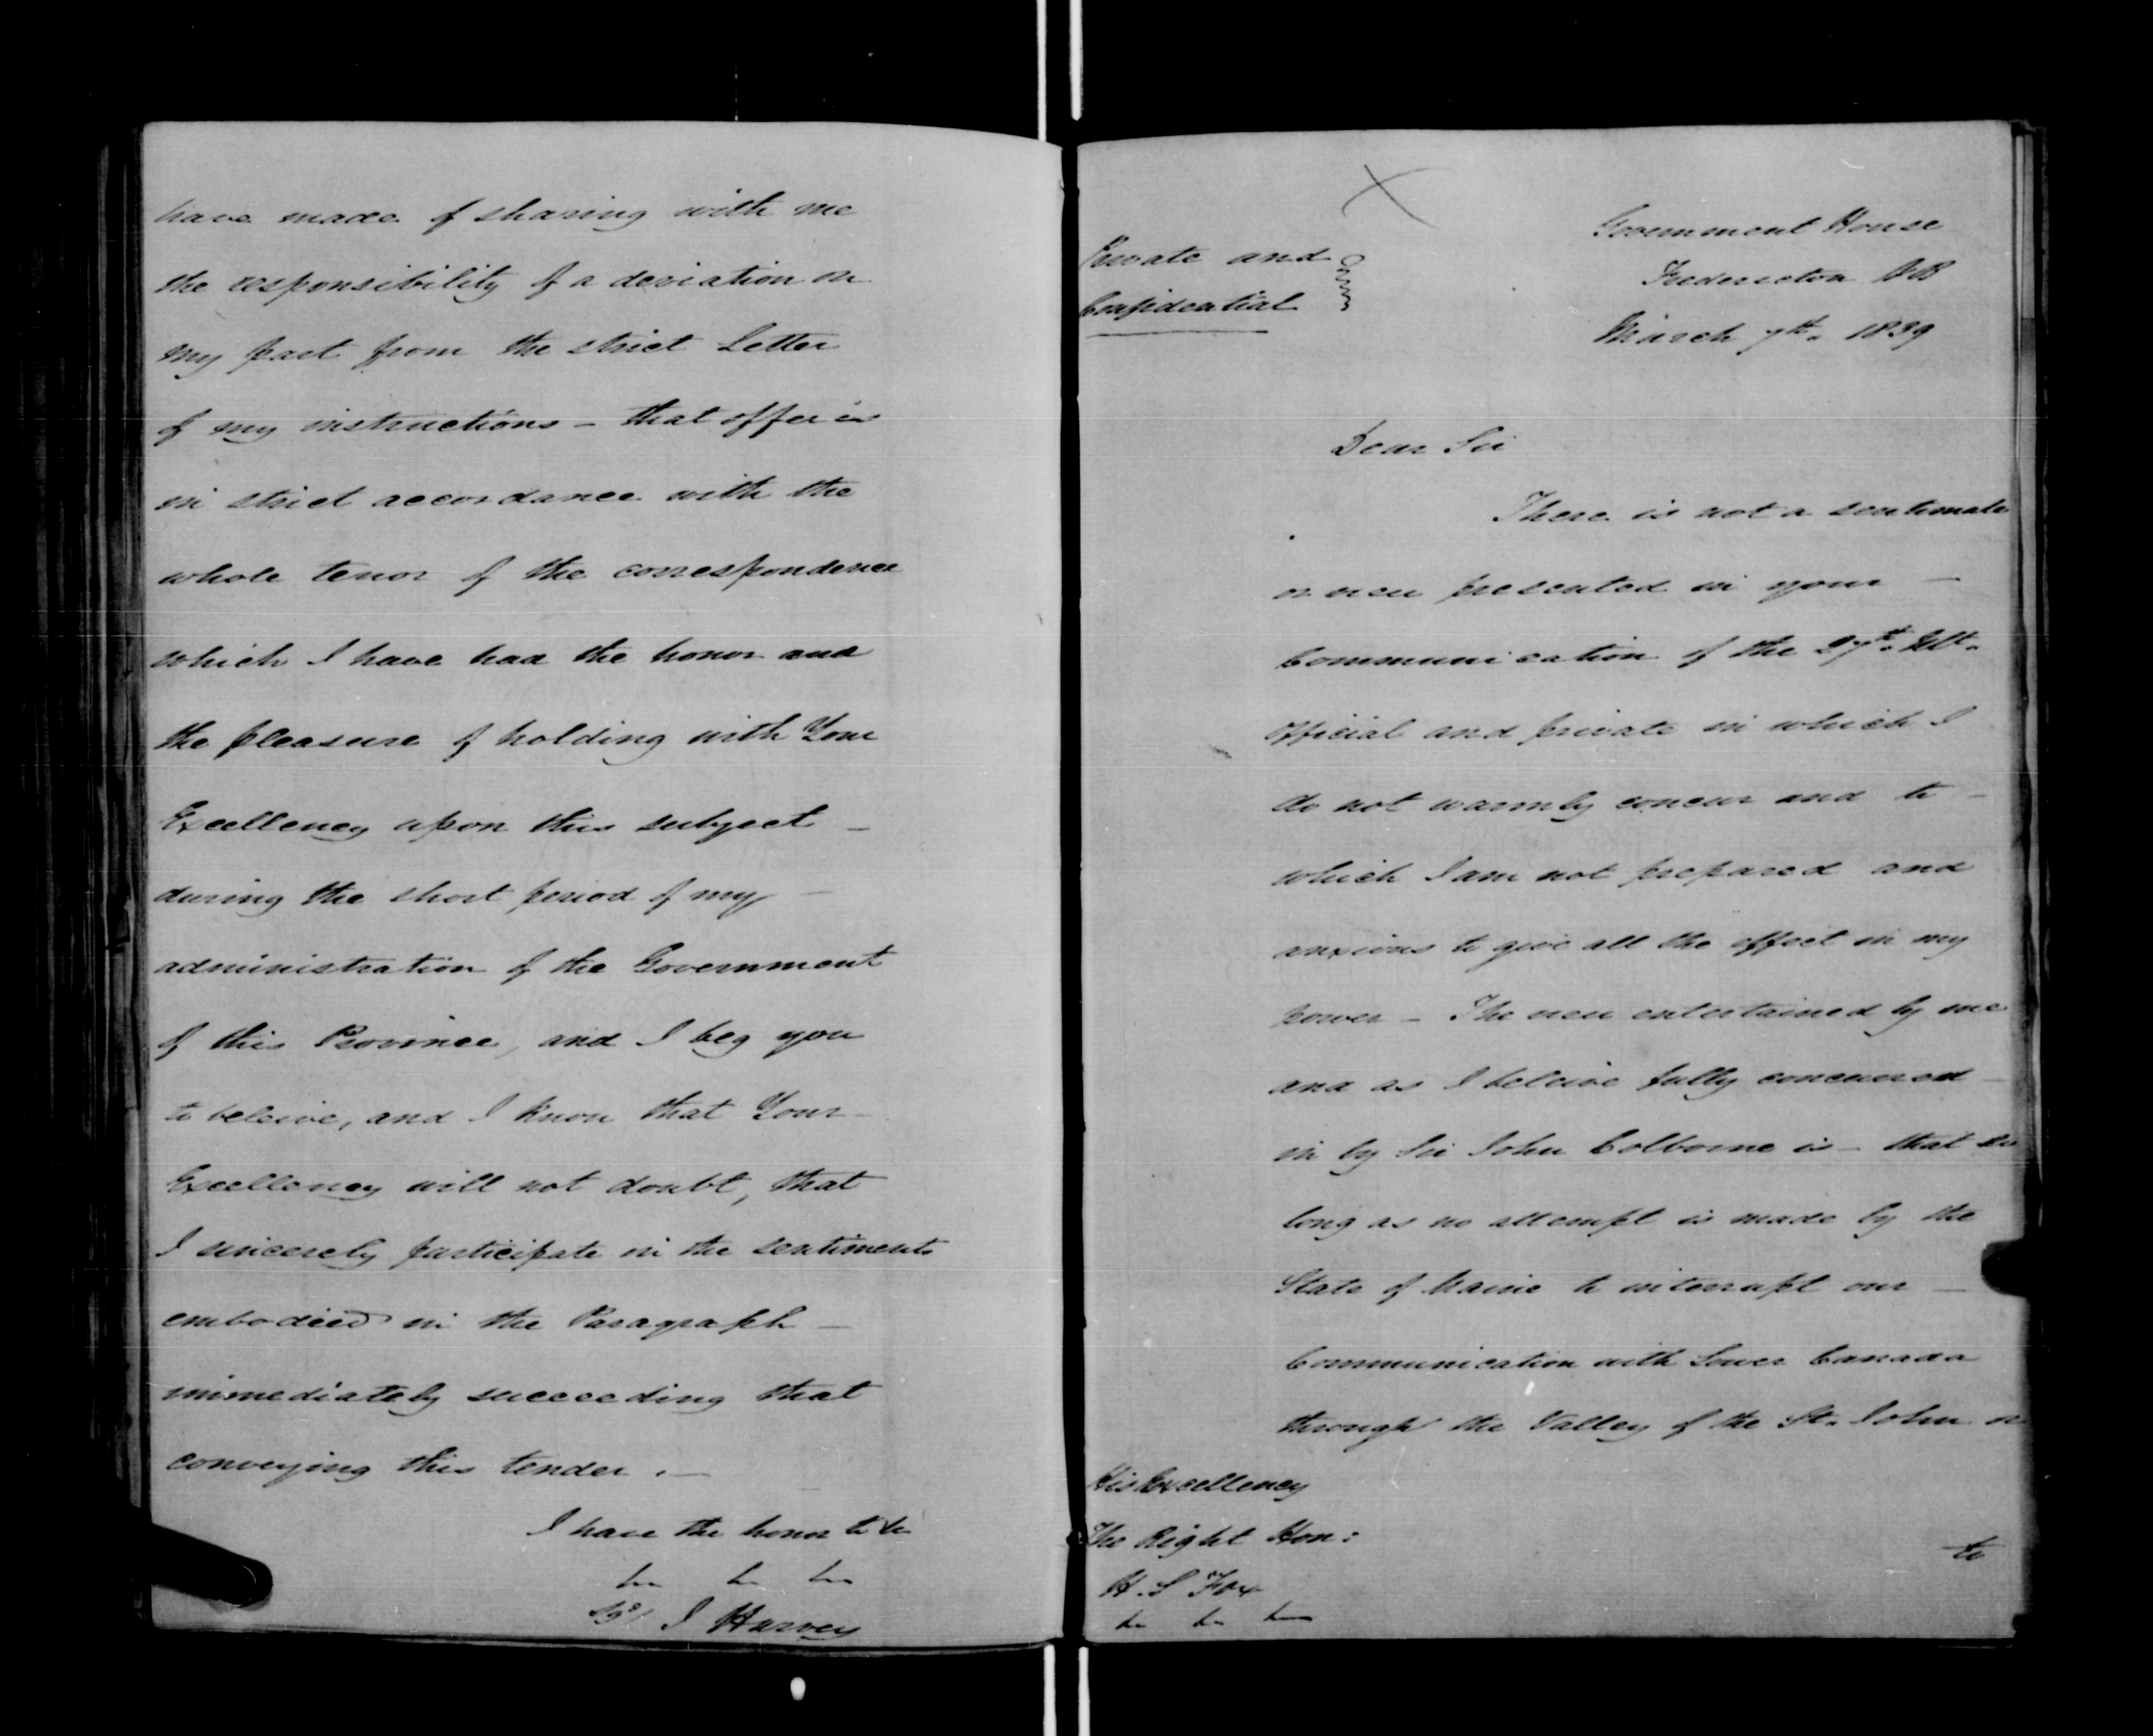 have made of sharing with me
the responsibility of a deviation on
my part from the strict Letter
of my instructions - that offer is
in strict accordance with the
whole tenor of the correspondence
which I have had the honor and
the pleasure of holding with Your
Excellency upon this subject -
during the short period of my -
administration of the Government
of this Province, and I beg you
to beleive, and I know that Your -
Excellency will not doubt, that
I sincerely participate in the sentiments
embodied in the Paragraph -
immediately succeeding that
conveying this tender . -
I have the honor to be
&c &c &c
Sgd/ J Harvey
Private and
Confidential
Government House
Fredericton NB
March 7th. 1839
Dear Sir
There is not a sentiment
or view presented in your -
Communication of the 27th. Ult.
Official and private in which I
do not warmly concur and to -
which I am not prepared and
anxious to give all the effect in my
power - The view entertained by me
and as I beleive fully concurred -
in by Sir John Colborne is - that so
long as no attempt is made by the
State of Maine to interrupt our -
Communication with Lower Canada
through the Valley of the St. John or
His Excellency
The Right Hon:
H. S Fox
&c &c &c
to